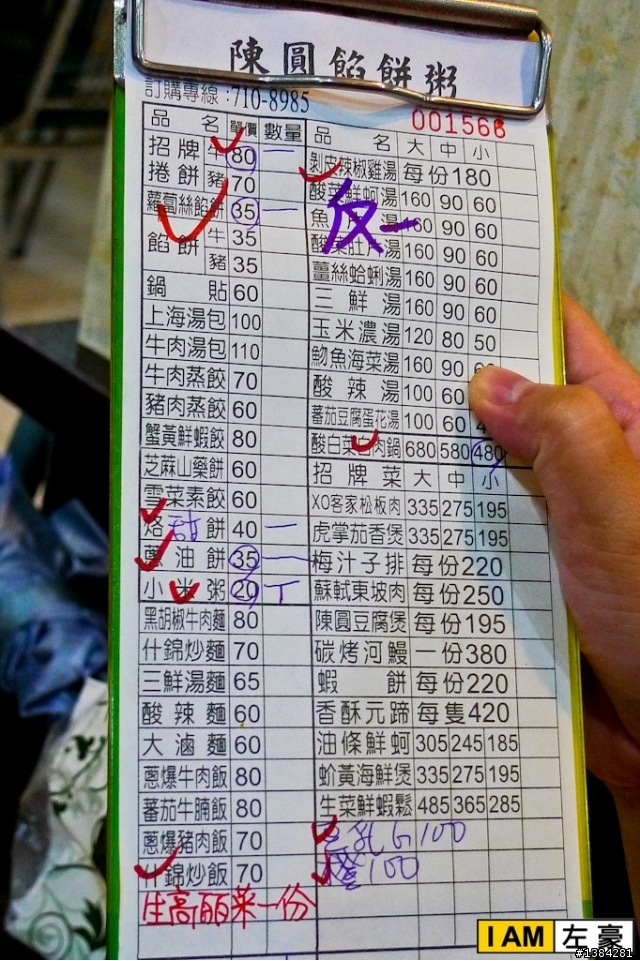 陳圓餡餅粥
訂購專線:710-8985
001566
品名 單價 數量
招牌捲餅 牛 80 一
豬 70
蘿蔔絲餡餅 35 一
餡餅 牛 35
豬 35
鍋貼 60
上海湯包 100
牛肉湯包 110
牛肉蒸餃 70
豬肉蒸餃 60
蟹黃鮮蝦餃 80
芝麻山藥餅 60
雪菜素餃 60
烙甜餅 40 一
蔥油餅 35 一
小米粥 20 丁
黑胡椒牛肉麵 80
什錦炒麵 70
三鮮湯麵 65
酸辣麵 60
大滷麵 60
蔥爆牛肉飯 80
蕃茄牛腩飯 80
蔥爆豬肉飯 70
什錦炒飯 70
生高麗菜一份
品名 大 中 小
剝皮辣椒雞湯 每份180
酸菜鮮蚵湯 160 90 60
魚 湯 60 90 60
反一
酸菜肚 湯 160 90 60
薑絲蛤蜊湯 160 90 60
三鮮湯 160 90 60
玉米濃湯 120 80 50
魩魚海菜湯 160 90
酸辣湯 100 60
蕃茄豆腐蛋花湯 100 60
酸白菜白肉鍋 680 580 480
招牌菜 大 中 小
XO客家松板肉 335 275 195
虎掌茄香煲 335 275 195
梅汁子排 每份220
蘇軾東坡肉 每份250
陳圓豆腐煲 每份195
碳烤河鰻 一份380
蝦餅 每份220
香酥元蹄 每隻420
油條鮮蚵 305 245 185
蚧黃海鮮煲 335 275 195
牛菜鮮蝦鬆 485 365 285
乳 100
100
I AM 左豪
#1384281